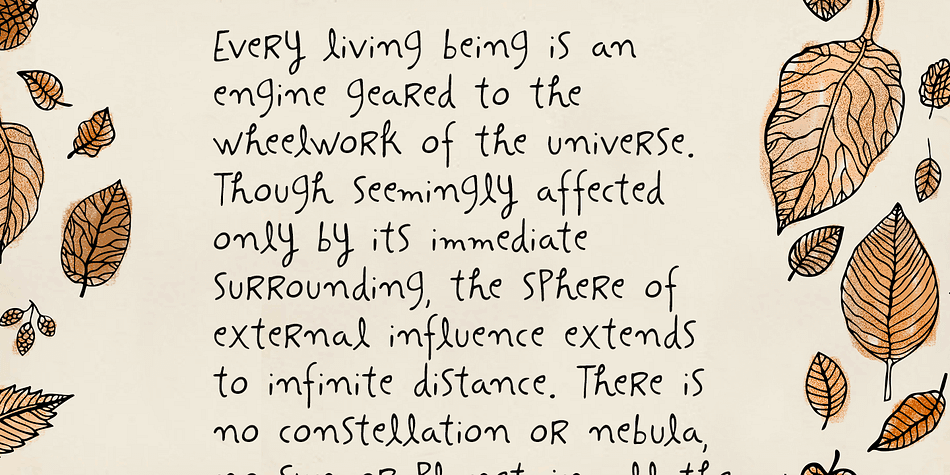 Every living being is an
engine geared to the
wheelwork of the universe.
Though seemingly affected
only by its immediate
surrounding, the sphere of
external influence extends
to infinite distance. There is
no constellation or nebula,
no sun or planet, in all the